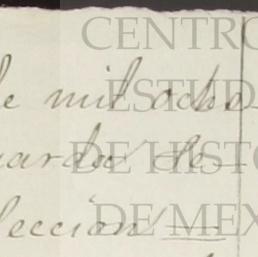 CENTRO
ESTUD
DE HISTO
DE MEX
de mil ocho
uarda de
lección